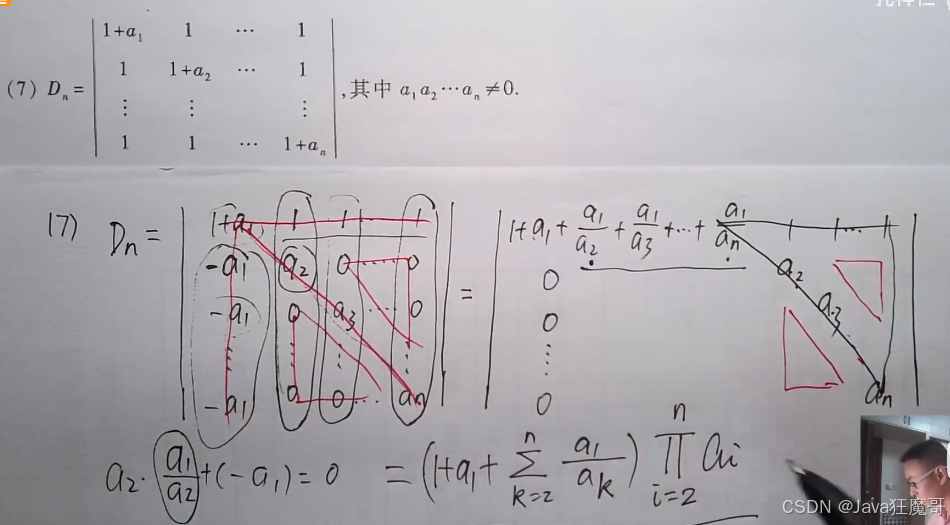 (7) Dₙ = | 1+a₁ 1 ⋯ 1 |
| 1 1+a₂ ⋯ 1 |
| ⋮ ⋮ ⋮ |
| 1 1 ⋯ 1+aₙ | ,其中 a₁a₂⋯aₙ≠0.
(7) Dn = | 1+a₁ 1 1 1 | = | 1+a₁+a₁/a₂+a₁/a₃+⋯+a₁/an 1 1⋯ 1 |
| -a₁ a₂ 0 ⋯ 0 | | 0 a₂ |
| -a₁ 0 a₃ ⋯ 0 | | 0 a₃ |
| ⋮ ⋮ ⋮ ⋮ | | ⋮ |
| -a₁ 0 0 ⋯ an | | 0 an |
a₂·a₁/a₂+(-a₁)=0 = (1+a₁+∑_{k=2}^{n} a₁/a_k) ∏_{i=2}^{n} ai
CSDN @Java狂魔哥